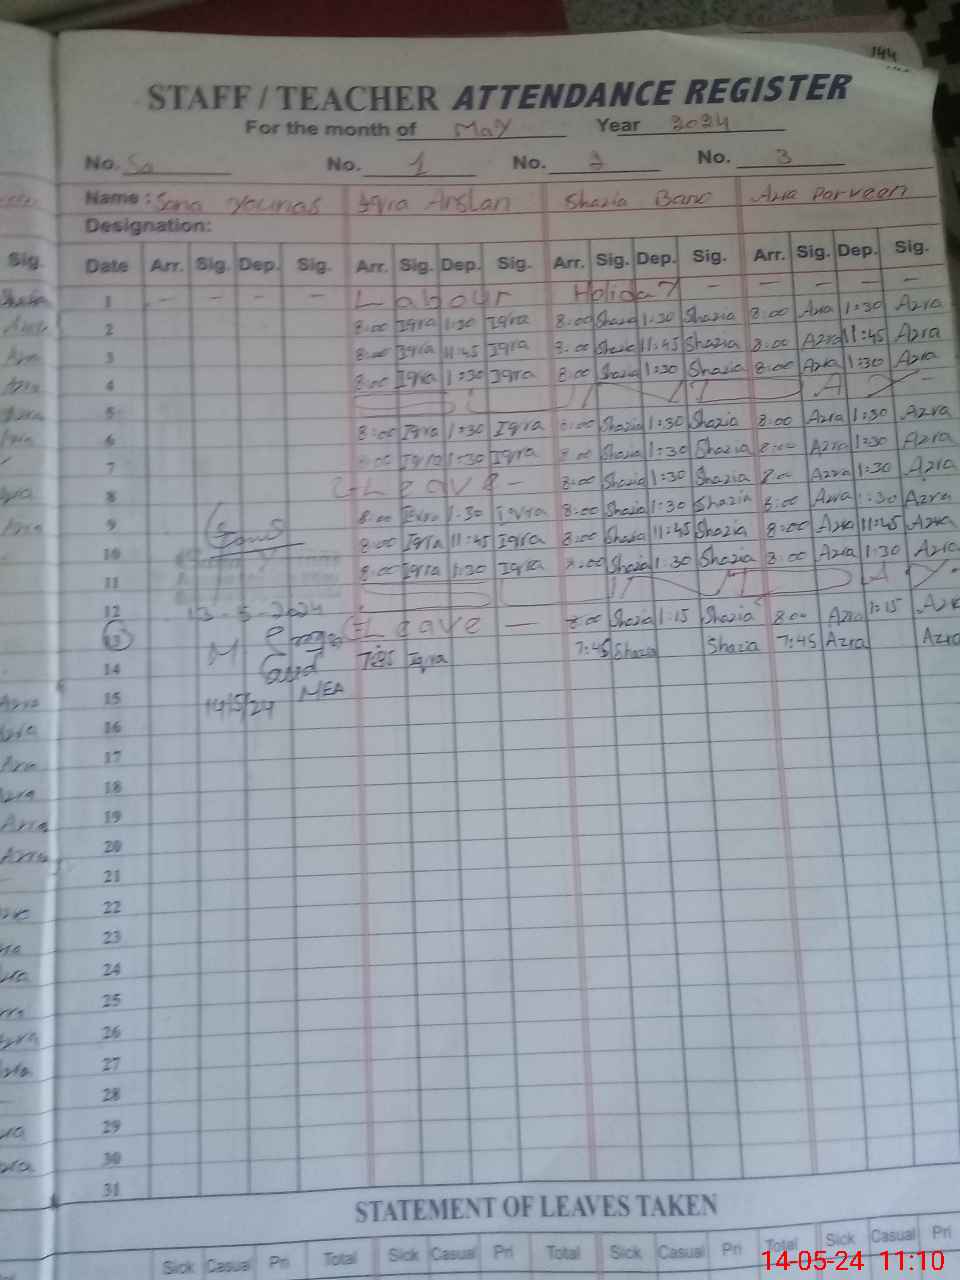 144
STAFF / TEACHER ATTENDANCE REGISTER
For the month of May Year 2024
No. Sa No. 1 No. 2 No. 3
Name : Sana Younas Iqra Arslan Shazia Bano Azra Parveen
Designation:
Sig. Date Arr. Sig. Dep. Sig. Arr. Sig. Dep. Sig. Arr. Sig. Dep. Sig. Arr. Sig. Dep. Sig.
1 - - - - Labour Holiday - - - - -
2 8:00 Iqra 1:30 Iqra 8:00 Shazia 1:30 Shazia 8:00 Azra 1:30 Azra
3 8:00 Iqra 11:45 Iqra 8:00 Shazia 11:45 Shazia 8:00 Azra 11:45 Azra
4 8:00 Iqra 1:30 Iqra 8:00 Shazia 1:30 Shazia 8:00 Azra 1:30 Azra
5 S U N D A Y -
6 8:00 Iqra 1:30 Iqra 8:00 Shazia 1:30 Shazia 8:00 Azra 1:30 Azra
7 8:00 Iqra 1:30 Iqra 8:00 Shazia 1:30 Shazia 8:00 Azra 1:30 Azra
8 Leave - 8:00 Shazia 1:30 Shazia 8:00 Azra 1:30 Azra
9 8:00 Iqra 1:30 Iqra 8:00 Shazia 1:30 Shazia 8:00 Azra 1:30 Azra
10 8:00 Iqra 11:45 Iqra 8:00 Shazia 11:45 Shazia 8:00 Azra 11:45 Azra
11 8:00 Iqra 1:30 Iqra 8:00 Shazia 1:30 Shazia 8:00 Azra 1:30 Azra
12 13-5-2024 S U N D A Y
13 Leave - 8:00 Shazia 1:15 Shazia 8:00 Azra 1:15 Azra
14 Iqra 7:45 Shazia Shazia 7:45 Azra Azra
15 14/5/24 MEA
16
17
18
19
20
21
22
23
24
25
26
27
28
29
30
31
STATEMENT OF LEAVES TAKEN
Sick Casual Pri Total Sick Casual Pri Total Sick Casual Pri Total Sick Casual Pri
14-05-24 11:10